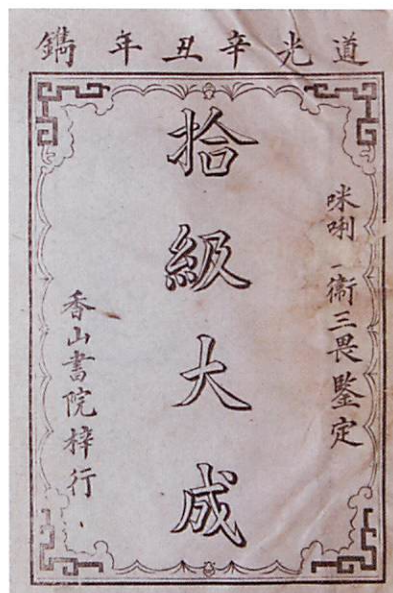 道光辛丑年鐫
咪唎 衛三畏鑒定
拾級大成
香山書院梓行